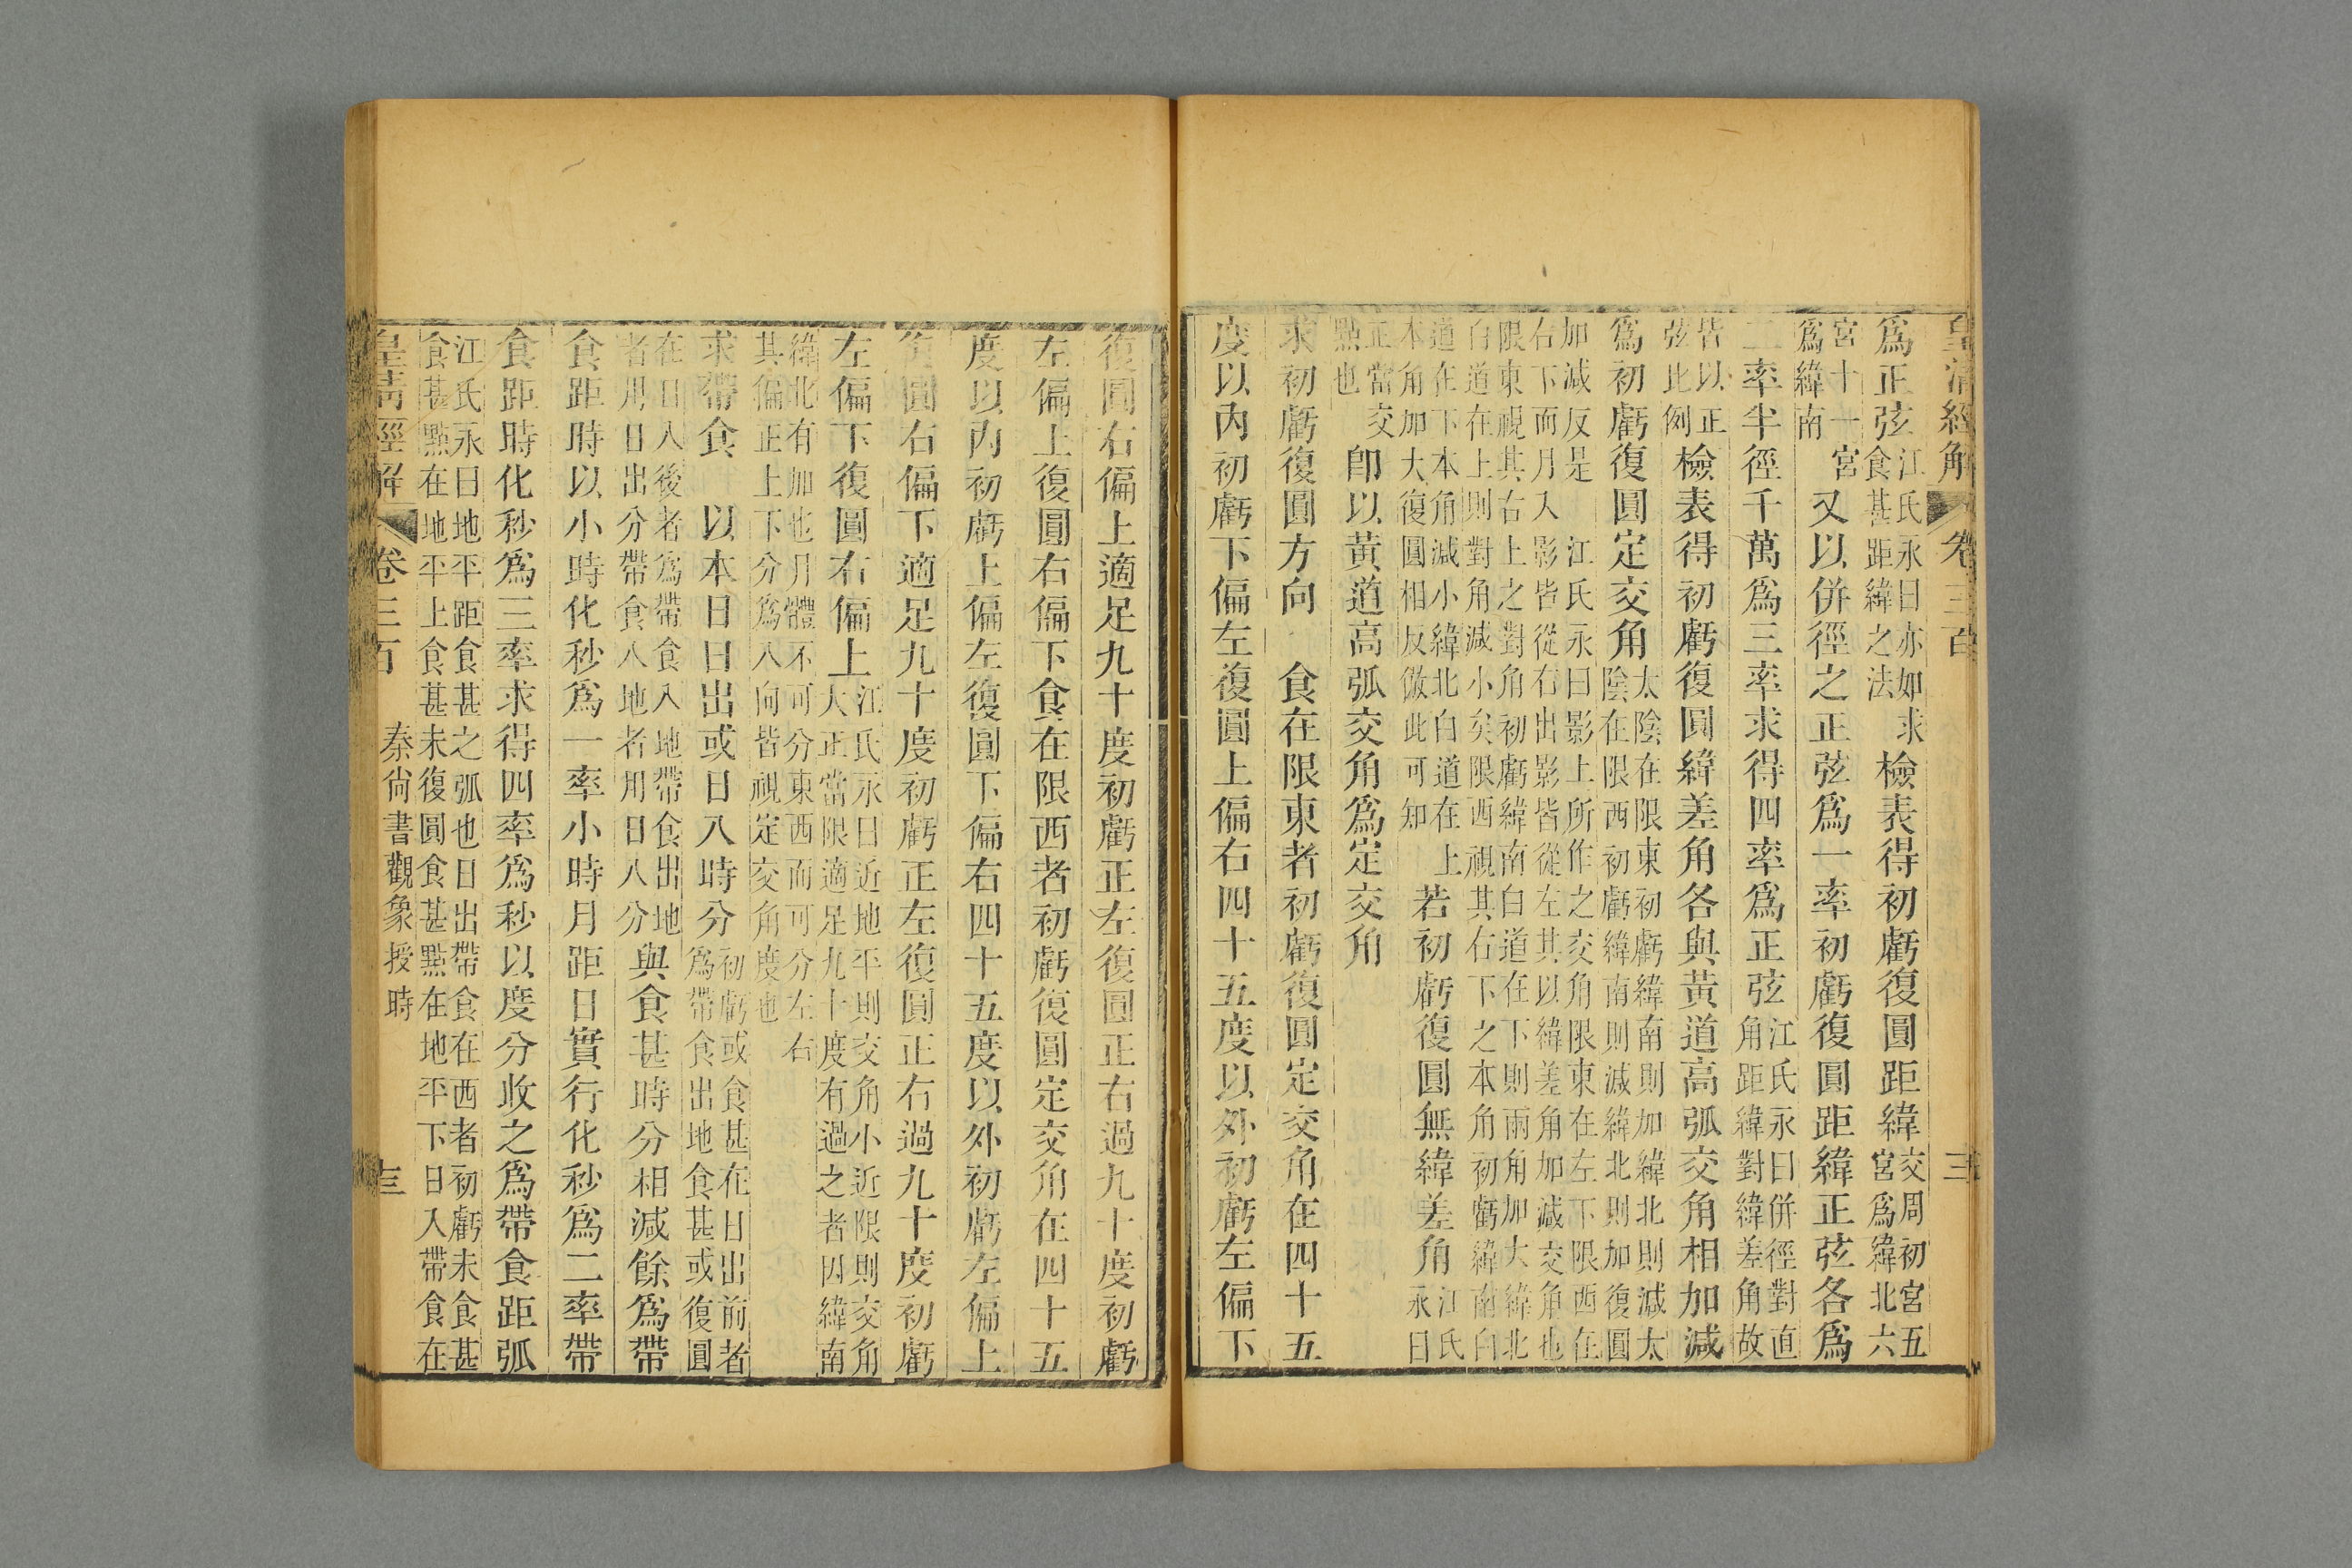 皇清經解 卷三百 三
爲正弦江氏永曰亦如求食甚距緯之法檢表得初虧復圓距緯交周初宮五宮爲緯北六
宮十一宮爲緯南又以併徑之正弦爲一率初虧復圓距緯正弦各爲
二率半徑千萬爲三率求得四率爲正弦江氏永曰併徑對直角距緯對緯差角故
皆以正弦比例檢表得初虧復圓緯差角各與黃道高弧交角相加減
爲初虧復圓定交角太陰在限東初虧緯南則加緯北則減太陰在限西初虧緯南則減緯北則加復圓
加減反是 江氏永曰影上所作之交角限東在左下限西在右下而月入影皆從右出影皆從左其以緯差角加減交角也
限東視其右上之對角初虧緯南白道在下則兩角加大緯北白道在上則對角減小矣限西視其右下之本角初虧緯南白
道在下本角減小緯北白道在上本角加大復圓相反倣此可知若初虧復圓無緯差角江氏永曰
正當交點也卽以黃道高弧交角爲定交角
求初虧復圓方向 食在限東者初虧復圓定交角在四十五
度以內初虧下偏左復圓上偏右四十五度以外初虧左偏下
復圓右偏上適足九十度初虧正左復圓正右過九十度初虧
左偏上復圓右偏下食在限西者初虧復圓定交角在四十五
度以內初虧上偏左復圓下偏右四十五度以外初虧左偏上
復圓右偏下適足九十度初虧正左復圓正右過九十度初虧
左偏下復圓右偏上江氏永曰近地平則交角小近限則交角大正當限適足九十度有過之者因緯南
緯北有加也月體不可分東西而可分左右其偏正上下分爲八向皆視定交角度也
求帶食 以本日日出或日入時分初虧或食甚在日出前者爲帶食出地食甚或復圓
在日入後者爲帶食入地帶食出地者用日出分帶食入地者用日入分與食甚時分相減餘爲帶
食距時以小時化秒爲一率小時月距日實行化秒爲二率帶
食距時化秒爲三率求得四率爲秒以度分收之爲帶食距弧
江氏永曰地平距食甚之弧也日出帶食在西者初虧未食甚食甚點在地平上食甚未復圓食甚點在地平下日入帶食在
皇清經解 卷三百 秦尚書觀象授時 三